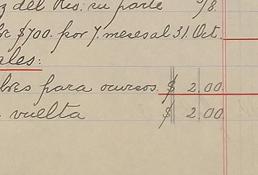 z del Res. su parte %8
bre $700. por 7. meses al 31 Oct.
ales:
bres para ocursos. $ 2.00
a vuelta $ 2.00